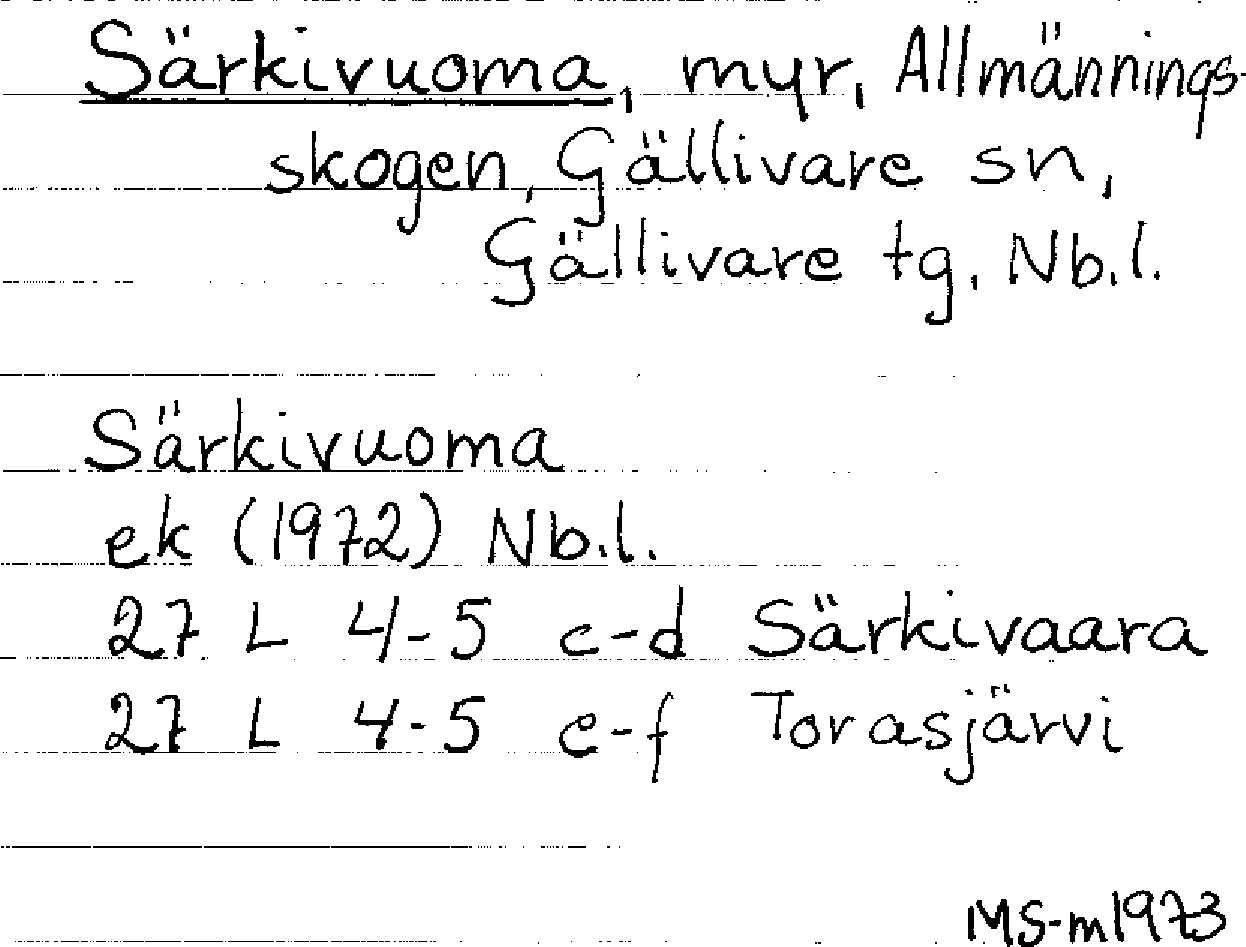 Särkivuoma, myr, Allmännings-
skogen, Gällivare sn,
Gällivare tg, Nb.l.
Särkivuoma
ek (1972) Nb.l.
27 L 4-5 c-d Särkivaara
27 L 4-5 e-f Torasjärvi
MS-m1973